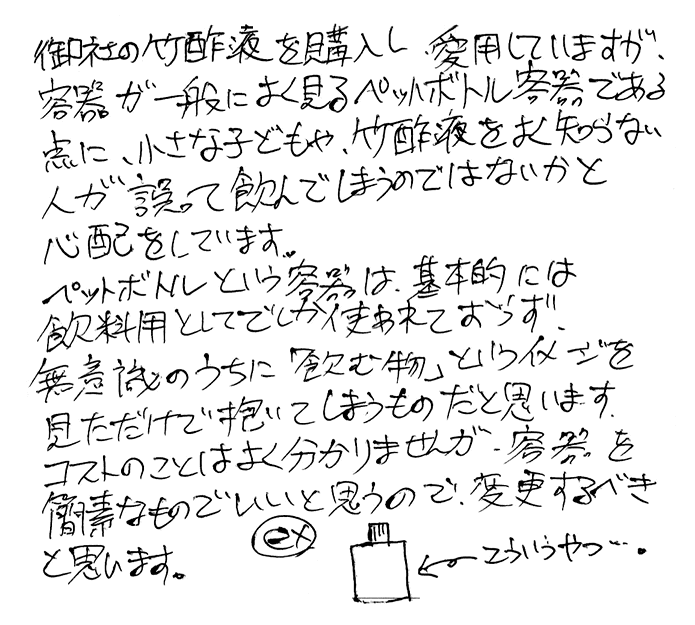 御社の竹酢液を購入し、愛用していますが、
容器が一般によく見るペットボトル容器である
点に、小さな子どもや、竹酢液をよく知らない
人が誤って飲んでしまうのではないかと
心配をしています。
ペットボトルという容器は、基本的には
飲料用としてでしか使われておらず、
無意識のうちに「飲む物」というイメージを
見ただけで抱いてしまうものだと思います。
コストのことはよく分かりませんが、容器を
簡素なものでいいと思うので、変更するべき
と思います。
ex
こういうやつ…。